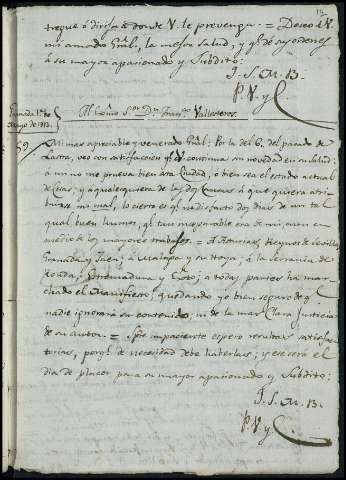 12
treque ó dirija á donde V. le prevenga. = Deseo á V.
mi amado Gral, la mejor salud, y q.e dé sus ordenes
á su mayor apasionado y Subdito:
J. S. M. B.
P. V. y C.
Granada 1.º de
Mayo de 1813.
Al Exmo S.or D.n Fran.co Vallesteros.
59.
Mi mas apreciable y venerado Gral: Por la del 6. del pasado de
Zafra, veo con satisfaccion q.e V. continua sin novedad en su Salud:
á mi no me prueva bien esta Ciudad, o bien sea el estado actual
de cosas; y á qualquiera de las dos causas á que quiera atri-
buirse mi mal, lo cierto es q.e no disfruto dos dias de un tal
qual buen humor, q.e tan inseparable era de mi, aun en
medio de los mayores trabajos. = A Asturias, Reynos de Sevilla,
Granada y Jaen; á Malaga y su Hoya; á la Serrania de
Ronda; Extremadura y Exto; á todas partes ha mar-
chado el Manifiesto, quedando yo bien seguro de q.e
nadie ignorará su contenido, ni de la mas clara Justicia
de su autor. = Spre impaciente espero resultas satisfac-
torias, porq.e de necesidad debe haberlas; y ese será el
dia de placer para su mayor apasionado y Subdito:
J. S. M. B.
P. V. y C.